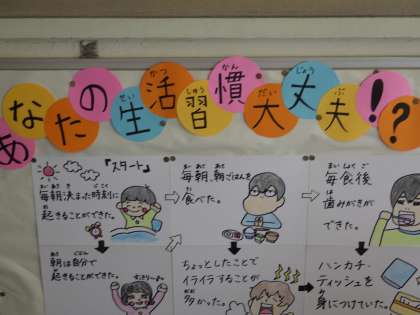 あなたの生活習慣大丈夫!?
せい かつ しゅう かん だい じょう ぶ
『スタート』
毎朝決まった時刻に
起きることができた。
毎朝、朝ごはんを
食べた。
毎食後
歯みがきが
できた。
朝は自分で
起きることができた。
すっきりー♪
ちょっとしたことで
イライラすることが
多かった。
ハンカチ・
ティッシュを
身につけていた。